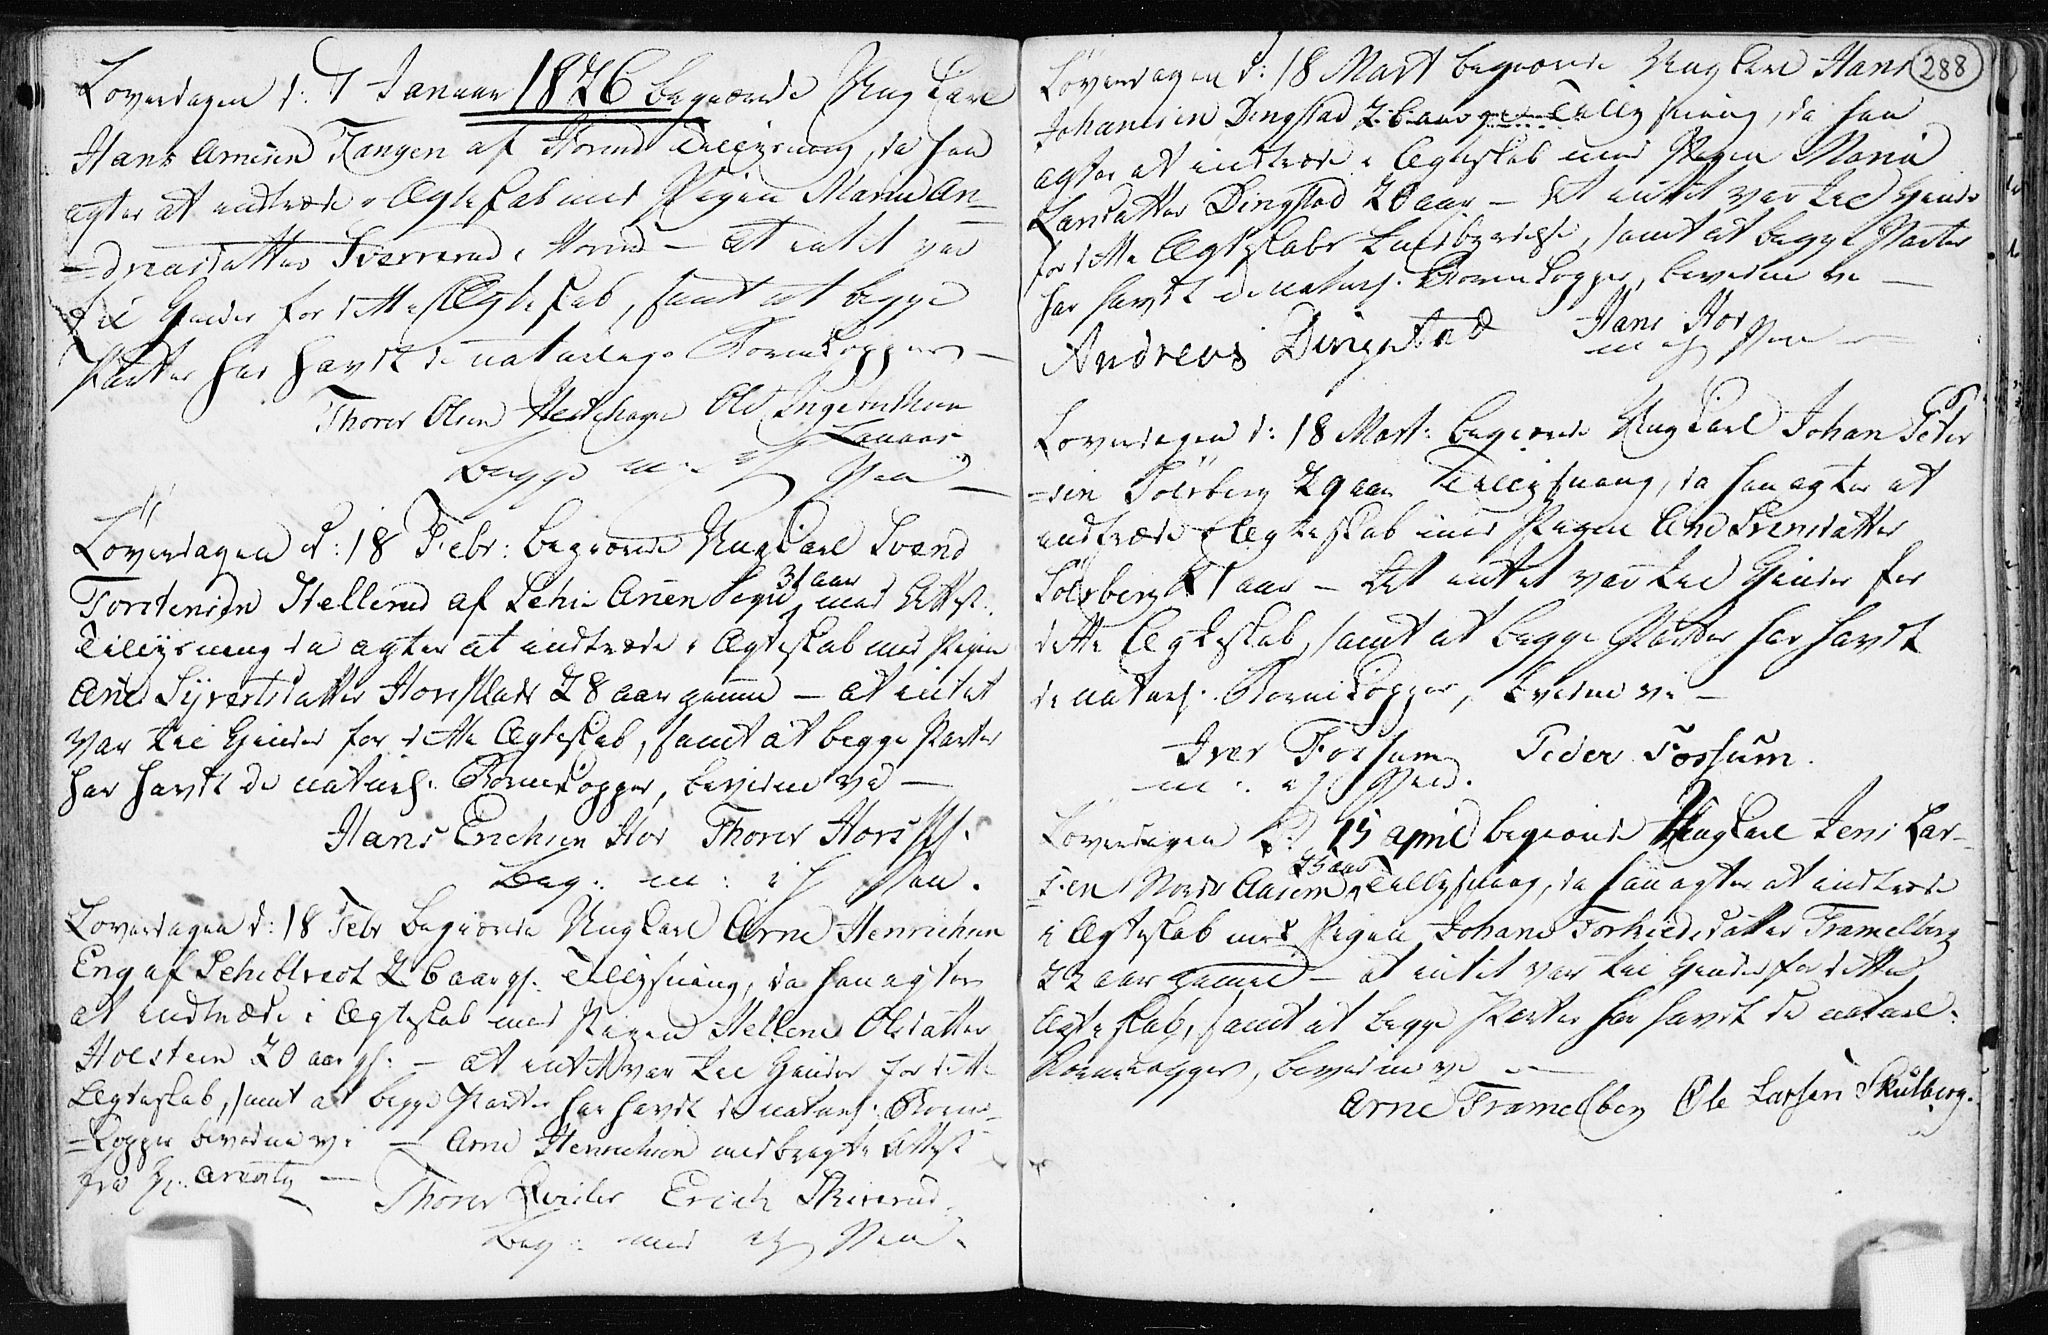 Löverdagen d: 7 Januar 1826 begiærede Ung Karl
Hans Arnesen Tangen af Horind Tillysning, da han
agter at indtræde i Ægteskab med Pigen Maria An-
-dreasdatter Sverrerud i Horind – at intet var
til Hinder for dette Ægteskab, samt at begge
Parter har havdt de naturlige Börnekopper –
Thorer Olsen Hestehagen Ole Ingebrethsen
begge m: i H Pen –
Löverdagen d: 18 Febr: begiærede Ung Karl Svend
Torstensen Hellerud af 31 aar med Attest
Tillysning da agter at indtræde i Ægteskab med Pigen
Ane Syvertsdatter Horsplads 28 aar gamel – at intet
var til Hinder for dette Ægteskab, samt at begge Parter
har havdt de naturl: Börnekopper, bevidne vi –
Hans Erichsen Hor Thorer Hors Pl:
Beg: m: i H Pen.
Löverdagen d: 18 Febr begiærede Ung Karl Arne Henrichsen
Eng af 26 aar gl: Tillysning, da han agter
at indtræde i Ægteskab med Pigen Hellene Olsdatter
Holstein 20 aar gl: – at intet var til Hinder for dette
Ægteskab, samt at begge Parter har havdt de naturl: Börne-
-kopper bevidne vi – Arne Henrichsen medbragte Attest
fra
Thorer Erich Skiverud
Beg: med H Pen.
288
Löverdagen d: 18 Mart begiærede Ung Karl Hans
Johanesen Dingstad 26 aar ge Tillysning, da han
agter at indtræde i Ægteskab med Pigen Maria
Larsdatter Dingstad 20 aar – at intet var til Hinder
for dette Ægteskabs Fuldbyrdelse, samt at begge Parter
har havdt de naturl: Börnekopper, bevidne vi –
Andreas Dingstad Hans Hor
m H Pen
Löverdagen d: 18 Mart: begiærede Ung Karl Johan Peder
-sen Solberg 29 aar Tillysning, da han agter at
indtræde i Ægteskab med Pigen Ane Svensdatter
Solberg 21 aar – at intet var til Hinder for
dette Ægteskab, samt at begge Parter har havdt
de naturl: Börnekopper, bevidne vi –
Iver Fossum Peder Fossum.
m: i H Pen.
Löverdagen d: 15 April begiærede Ung Karl Jens Lar-
-sen Nordr Aasem 25 aar Tillysning, da han agter at indtræde
i Ægteskab med Pigen Johane Torkieldsdatter Tramelberg
22 aar gamel – at intet var til Hinder for dette
Ægteskab, samt at begge Parter har havdt de naturl:
Börnekopper, bevidne vi –
Arne Tramelberg Ole Larsen Skulberg.